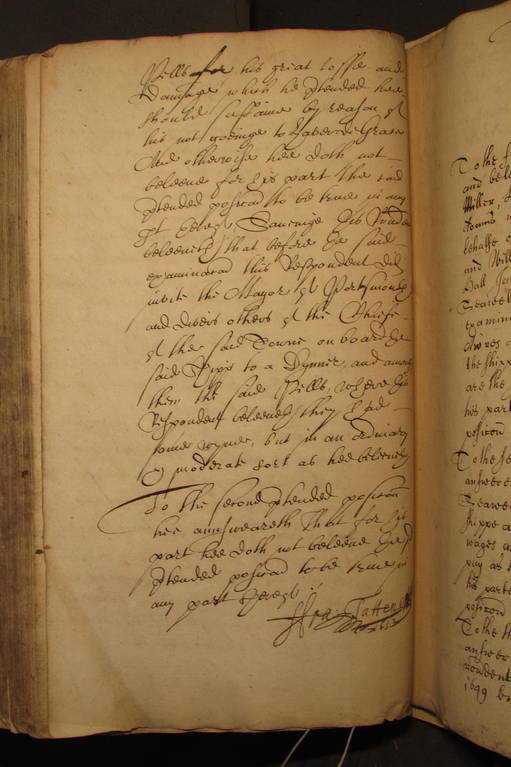 Pills for his great losse and
Damage which he ptended hee
should sustaine by reason of
his not goeinge to Haver de Grace
And otherwise hee doth not
beleeve for his part the sad
ptended posicon to be true in any
pt thereof, Saveinge this Rondent
beleeveth that before the said
examinacon this Respondent did
invite the Mayor of Portsmouth
and divers others of the Chiefe
of the said Towne on board the
said Shipp to a Dynner, and amongst
them the said Pills, where this
Respondent beleeveth they had
some wyne, but in an ordinary
& moderate sort as hee beleeveth
To the second ptended posicon
hee answeareth That for his
part hee doth not beleeve the sd
ptended posicon to be true in
any part thereof
To the
and bele
Miller,
behalfe
and Will
Hall
examin
the shipp
are the
his part
posicon
To the se
answere
shippe a
wages
pay as
his parte
posicon
To the th
answer
1649